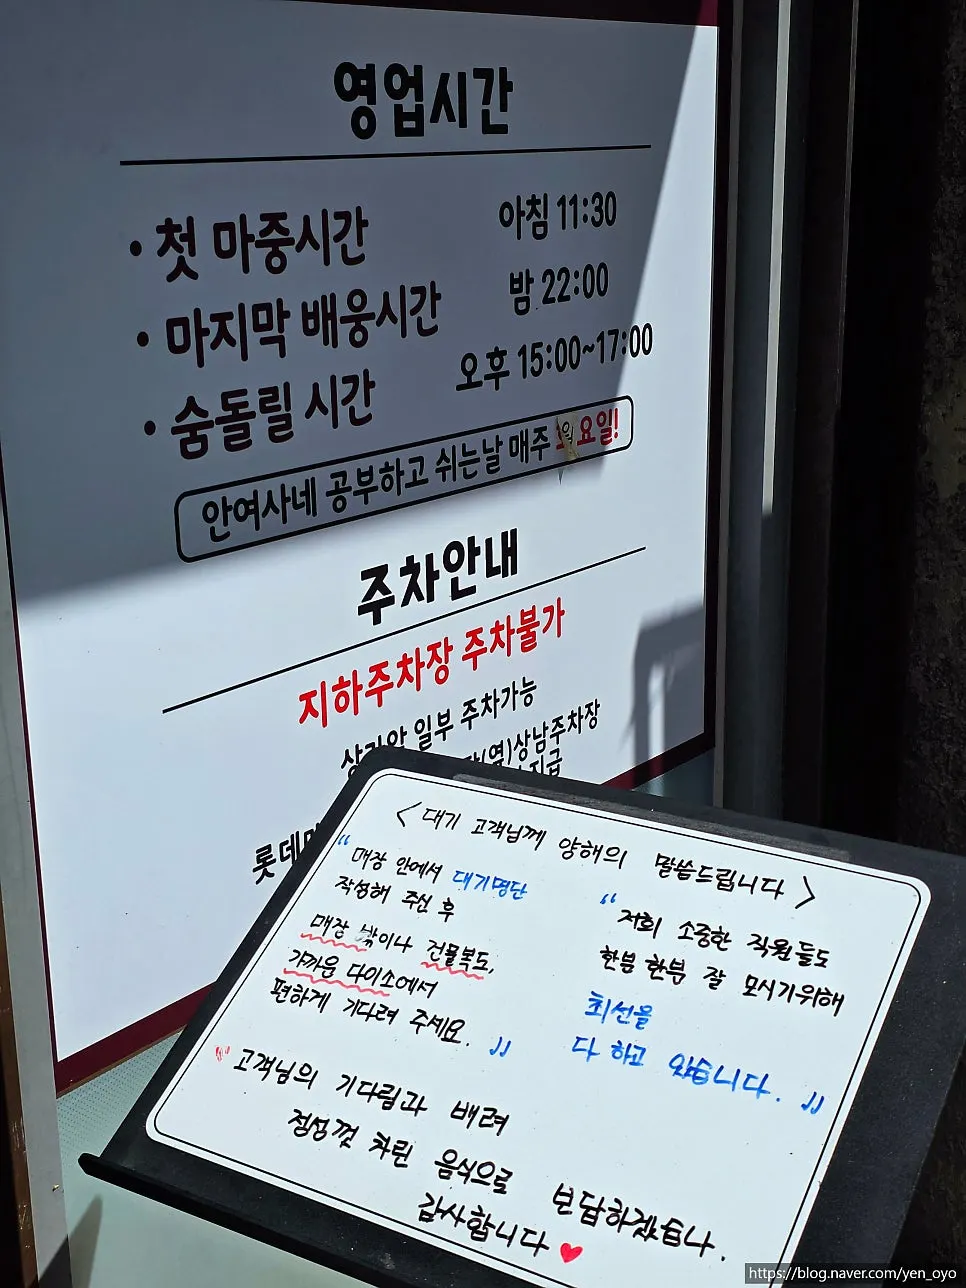 영업시간
• 첫 마중시간 아침 11:30
• 마지막 배웅시간 밤 22:00
• 숨돌릴 시간 오후 15:00~17:00
안여사네 공부하고 쉬는날 매주 요일!
주차안내
지하주차장 주차불가
일부 주차가능
(옆)상남주차장
롯데
< 대기 고객님께 양해의 말씀드립니다 >
"매장 안에서 대기명단
작성해 주신 후
매장 밖이나 건물복도,
가까운 다이소에서
편하게 기다려 주세요. "
"저희 소중한 직원들도
한분 한분 잘 모시기위해
최선을
다 하고 있습니다. "
"고객님의 기다림과 배려
정성껏 차린 음식으로 보답하겠습니다.
감사합니다 ♥
https://blog.naver.com/yen_oyo